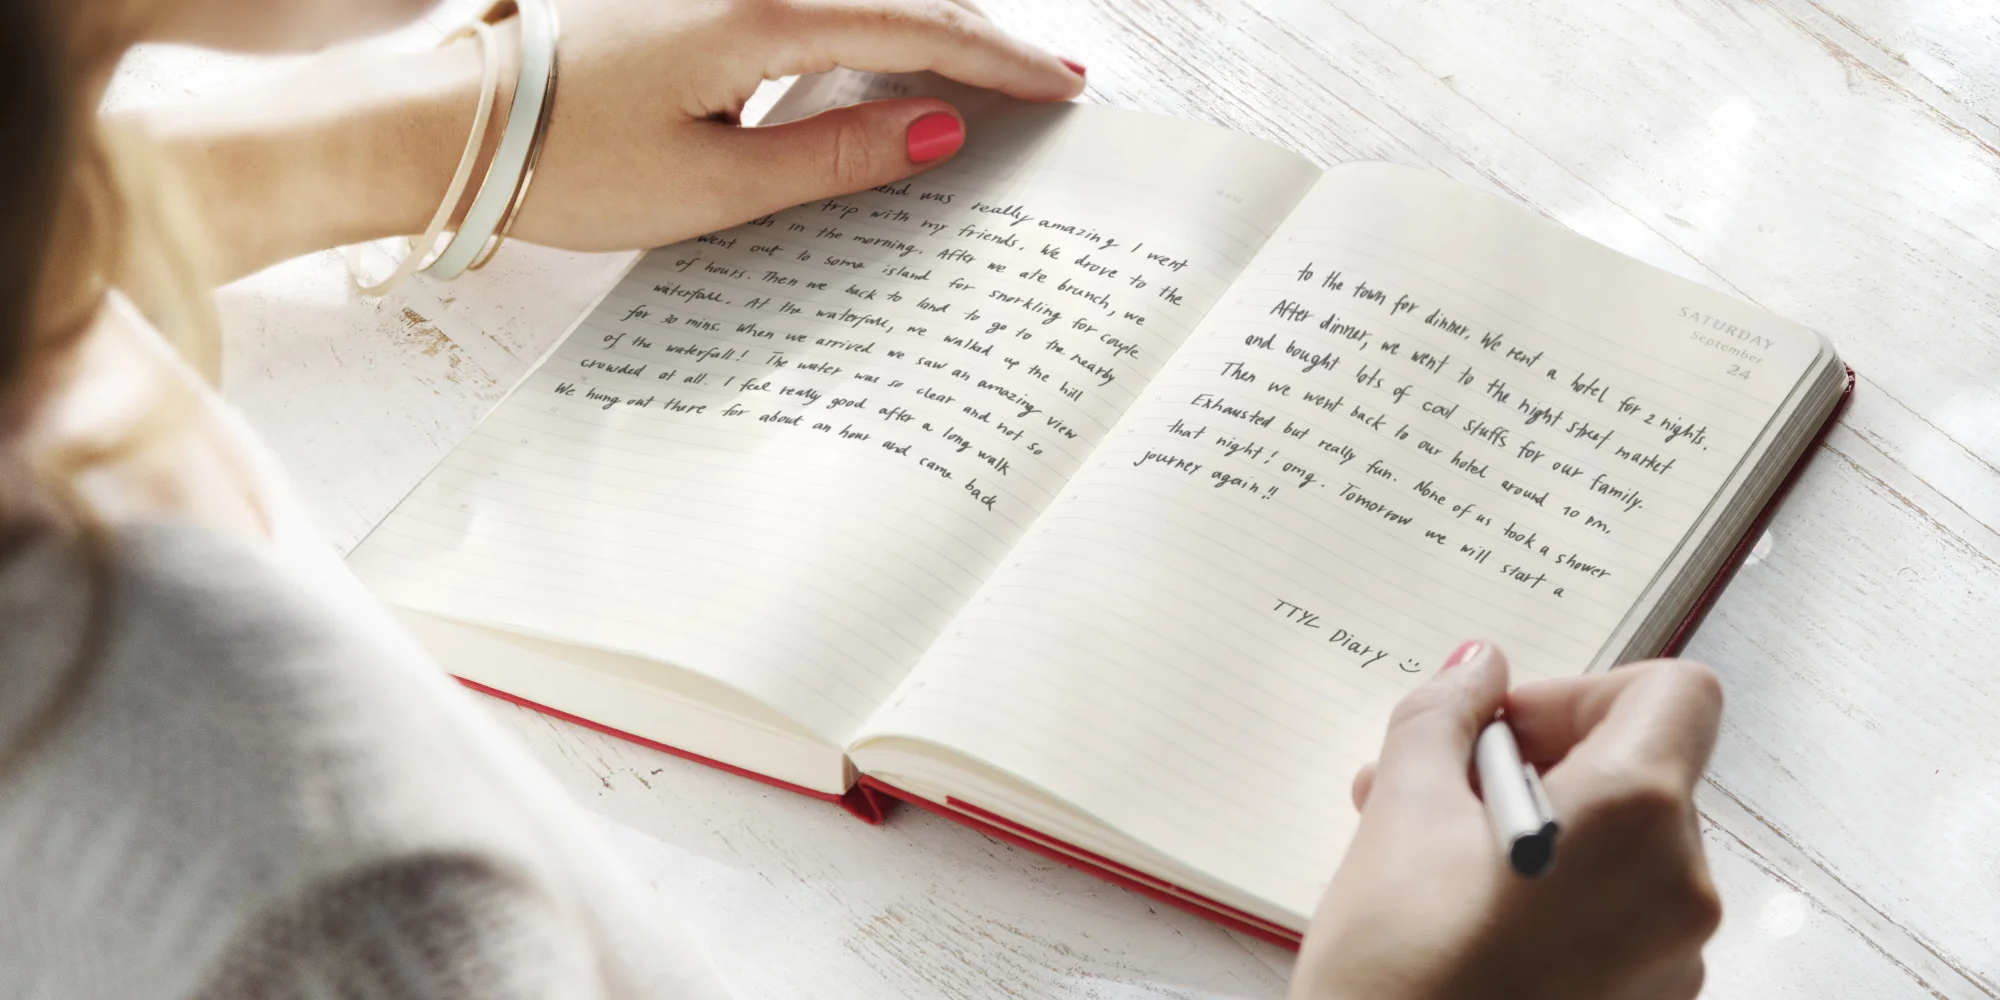 was really amazing I went
trip with my friends. We drove to the
in the morning. After we ate brunch, we
went out to some island for snorkling for couple
of hours. Then we back to land to go to the nearby
waterfall. At the waterfall, we walked up the hill
for 30 mins. When we arrived we saw an amazing view
of the waterfall! The water was so clear and not so
crowded at all. I feel really good after a long walk
We hung out there for about an hour and came back
SATURDAY
September
24
to the town for dinner. We rent a hotel for 2 nights.
After dinner, we went to the night street market
and bought lots of cool stuffs for our family.
Then we went back to our hotel around 10 pm.
Exhausted but really fun. None of us took a shower
that night! omg. Tomorrow we will start a
journey again!!
TTYL Diary :)